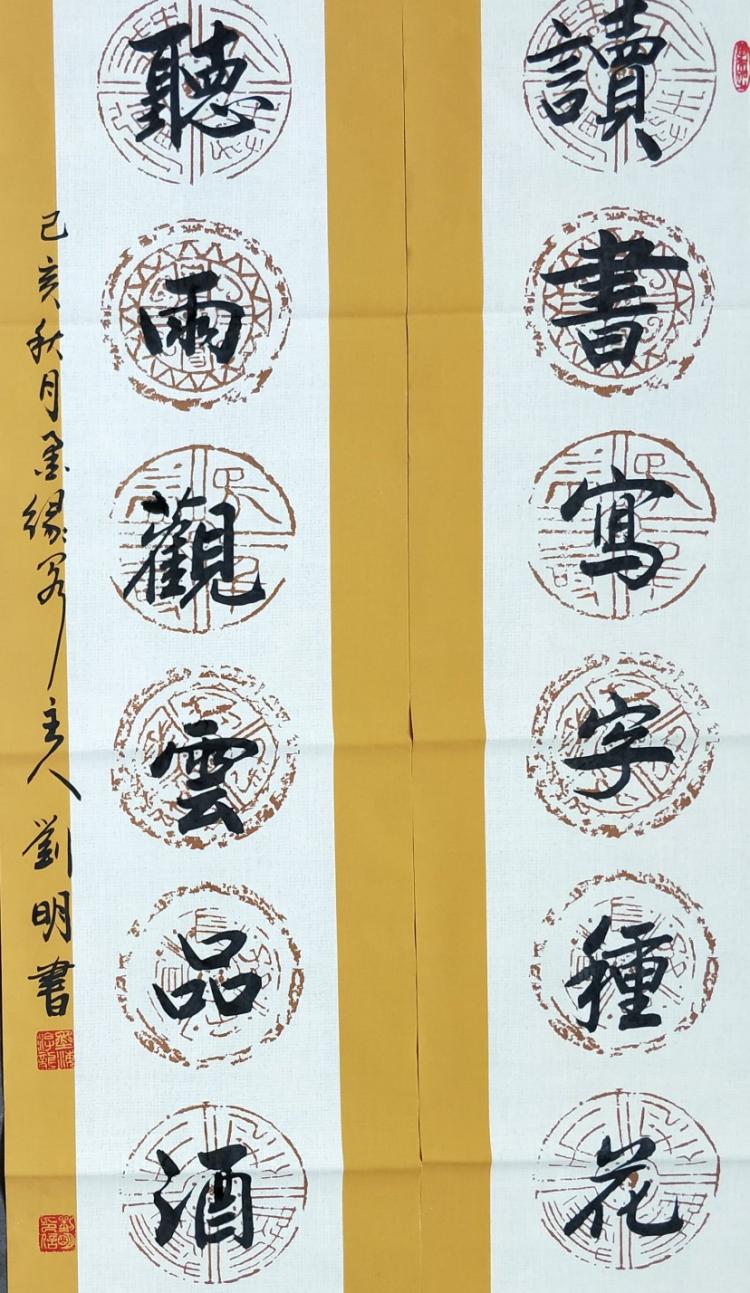 讀書寫字種花
聽雨觀雲品酒
己亥秋月墨緣閣主人劉明書